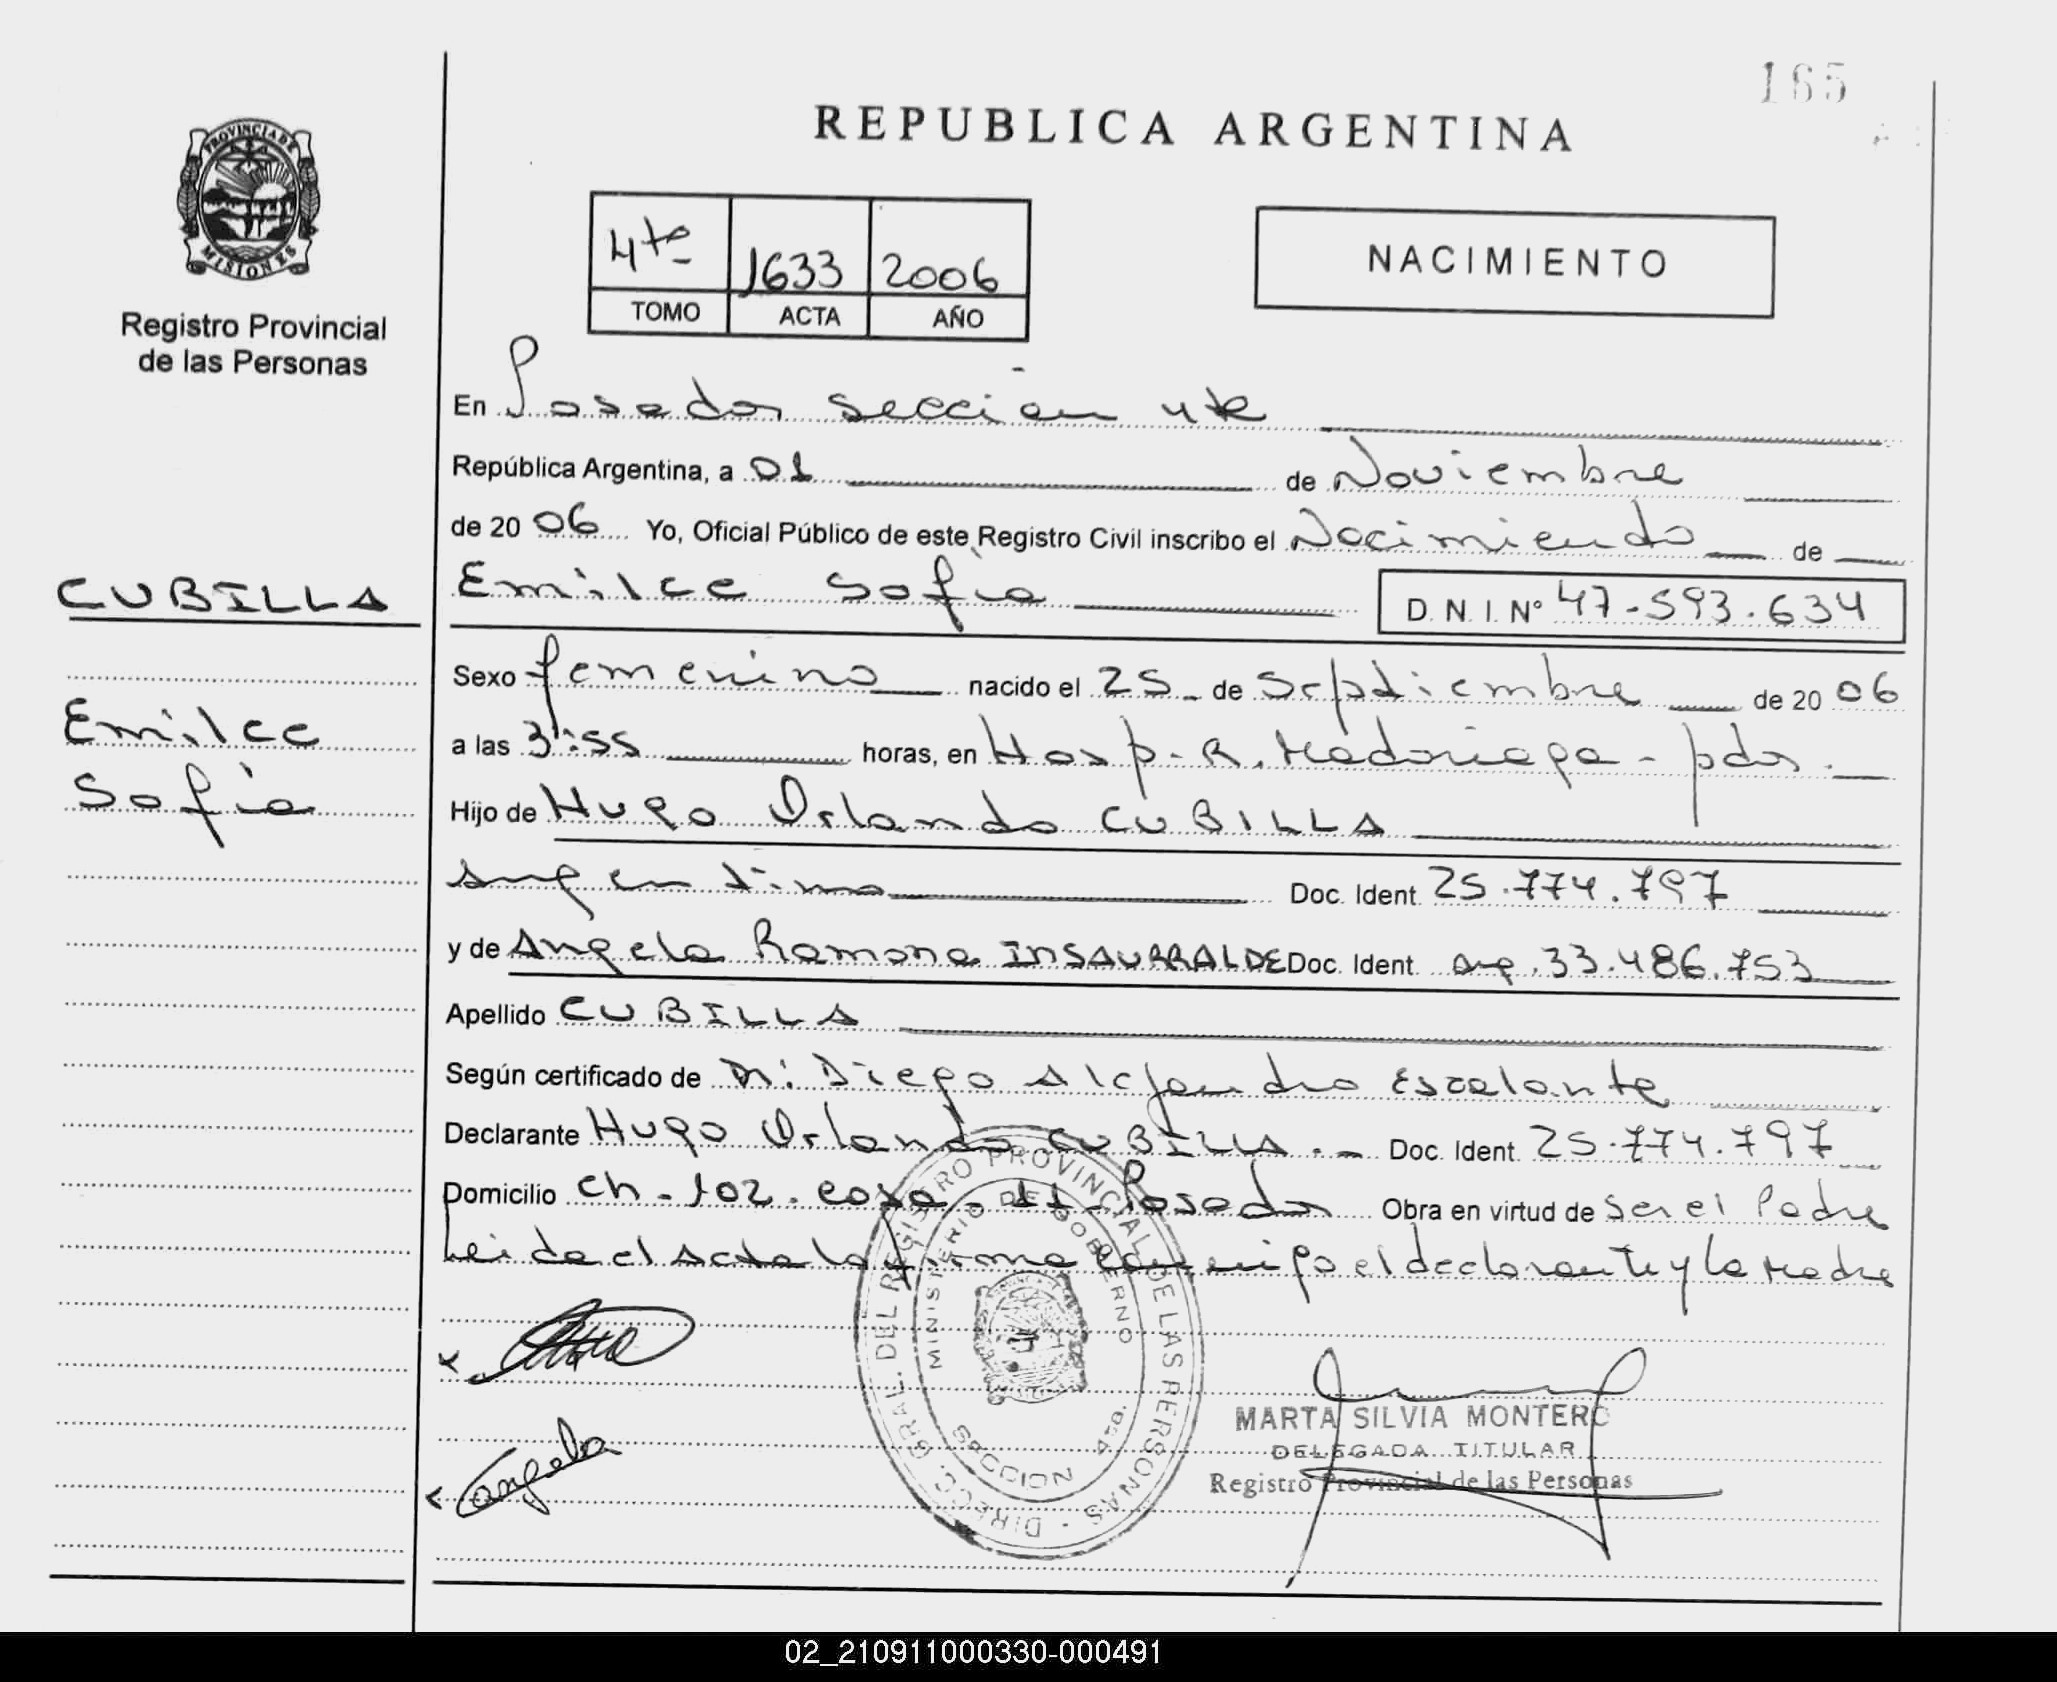 165
REPUBLICA ARGENTINA
PROVINCIA DE
MISIONES
Registro Provincial
de las Personas
4to 1633 2006
TOMO ACTA AÑO
NACIMIENTO
En Posadas Sección 4ta
República Argentina, a 01 de Noviembre
de 20 06 Yo, Oficial Público de este Registro Civil inscribo el Nacimiento de
CUBILLA
Emilce Sofia
D. N. I. Nº 47.593.634
Emilce Sofia
Sexo femenino nacido el 25 de Septiembre de 20 06
a las 3:55 horas, en Hosp. R. Madariaga - pdas.
Hijo de Hugo Orlando CUBILLA
argentino Doc. Ident. 25.774.797
y de Angela Ramona INSAURRALDE Doc. Ident. arg. 33.486.753
Apellido CUBILLA
Según certificado de Dr. Diego Alejandro Escalante
Declarante Hugo Orlando CUBILLA.- Doc. Ident. 25.774.797
Domicilio Ch. 102. casa. 11 Posadas Obra en virtud de ser el Padre
Leida el Acta la firma conmigo el declarante y la Madre
DIRECC. GRAL. DEL REGISTRO PROVINCIAL DE LAS PERSONAS -
MINISTERIO DE GOBIERNO
SECCION 4ta.
Angela
MARTA SILVIA MONTERO
DELEGADA TITULAR
Registro Provincial de las Personas
02_210911000330-000491